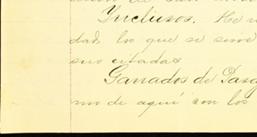 Inclusos. He r
dad, lo que se sirve
sus citadas
Ganados de Pasq
mo de aquí con los